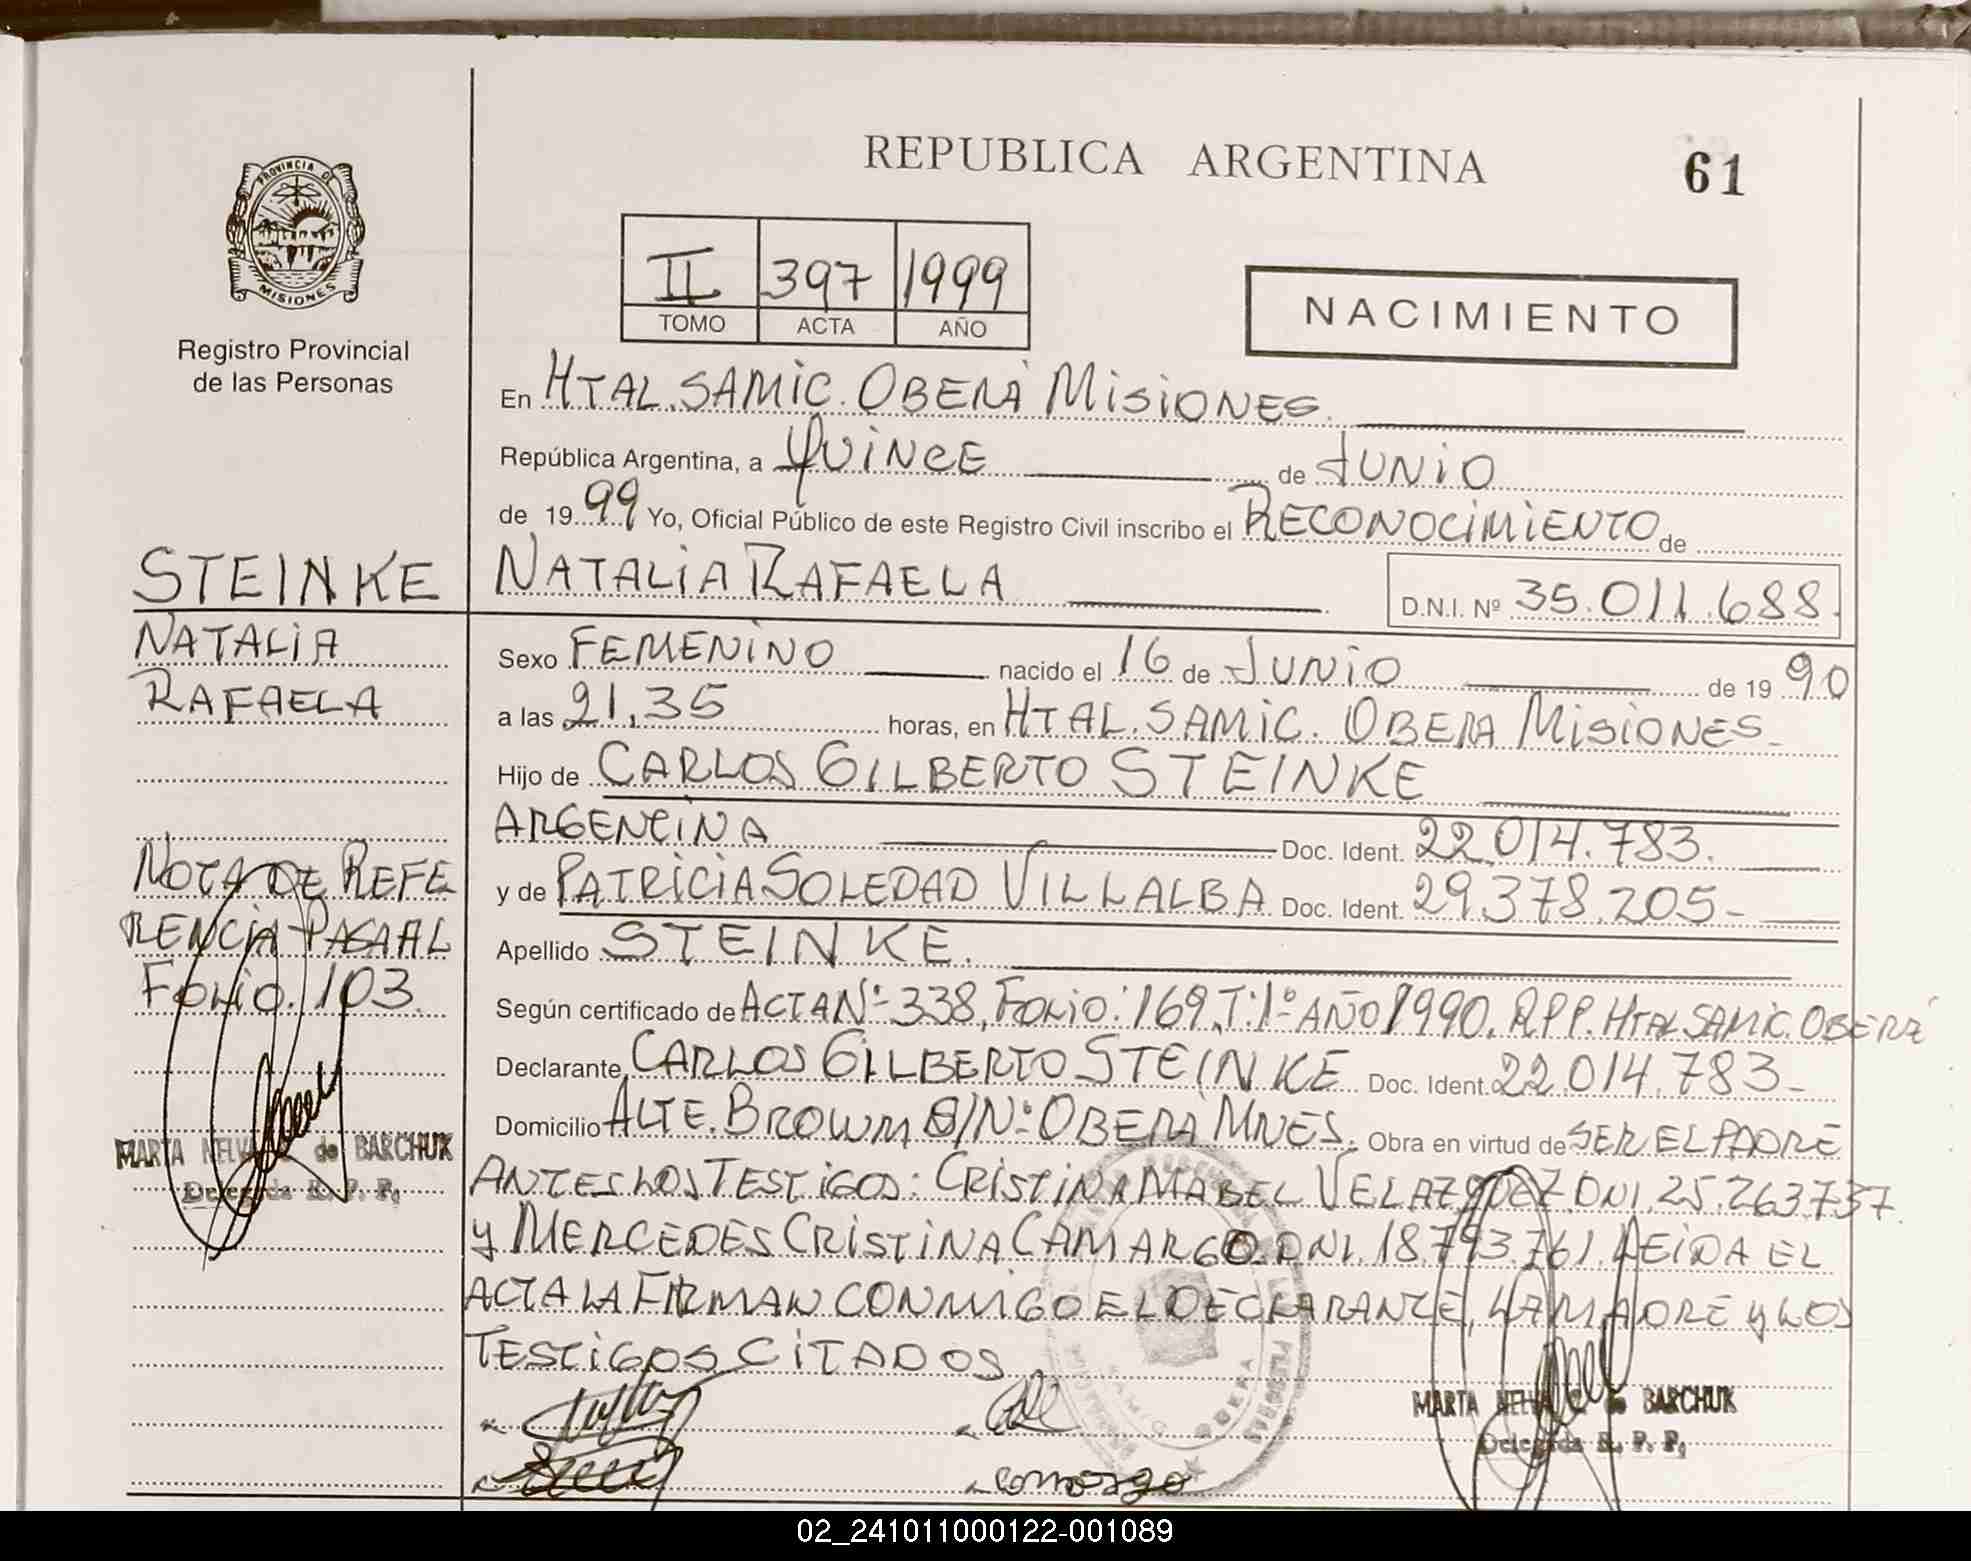 REPUBLICA ARGENTINA
61
PROVINCIA DE
MISIONES
Registro Provincial
de las Personas
II 397 1999
TOMO ACTA AÑO
NACIMIENTO
En HTAL. SAMIC. OBERÁ MISIONES.
República Argentina, a QUINCE de JUNIO
de 1999 Yo, Oficial Público de este Registro Civil inscribo el RECONOCIMIENTO de
NATALIA RAFAELA D.N.I. Nº 35.011.688.
STEINKE
NATALIA
RAFAELA
Sexo FEMENINO nacido el 16 de JUNIO de 1990
a las 21,35 horas, en HTAL. SAMIC. OBERA MISIONES-
Hijo de CARLOS GILBERTO STEINKE
ARGENTINA Doc. Ident. 22.014.783.
y de PATRICIA SOLEDAD VILLALBA Doc. Ident. 29.378.205-
Apellido STEINKE.
Según certificado de ACTA Nº 338, FOLIO: 169, T: 1º AÑO 1990. RPP. HTAL SAMIC. OBERÁ
Declarante CARLOS GILBERTO STEINKE Doc. Ident. 22.014.783-
Domicilio ALTE. BROWM S/Nº OBERÁ MNES. Obra en virtud de SER EL PADRE
ANTES LOS TESTIGOS: CRISTINA MABEL VELAZQUEZ DNI. 25.263737.
y MERCEDES CRISTINA CAMARGO. DNI. 18.793.761. LEIDA EL
ACTA LA FIRMAN CONMIGO EL DECLARANTE, LA MADRE y LOS
TESTIGOS CITADOS
NOTA DE REFE
RENCIA PASA AL
FOLIO. 103.
MARTA NELVA de BARCHUK
Delegada R. P. P.
camargo
OBERA
MARTA NELVA C. de BARCHUK
Delegada R. P. P.
02_241011000122-001089